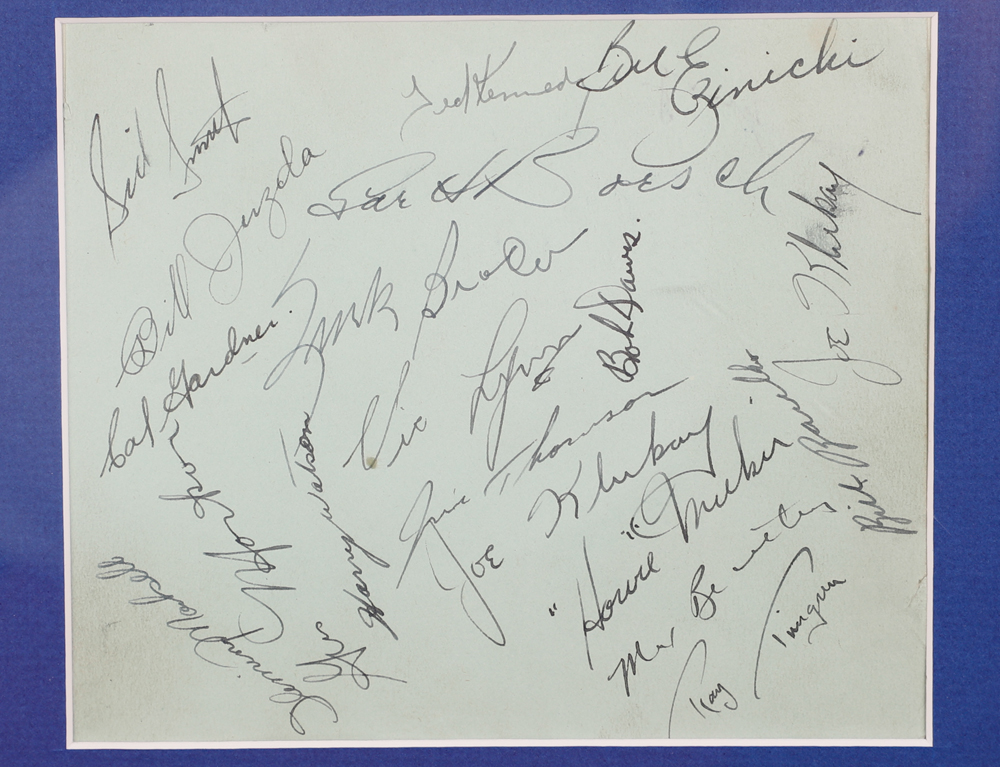 Ted Kennedy
Bill Ezinicki
Sid Smith
Bill Juzda
Garth Boesch
Joe Klukay
Turk Broda
Bob Dawes.
Cal Gardner.
Vic Lynn
Jim Thomson
Joe Klukay
Harry Watson
"Howie" Meeker
Bill Barilko
Max Bentley
Ray Timgren
Fleming Mackell
Gus Mortson